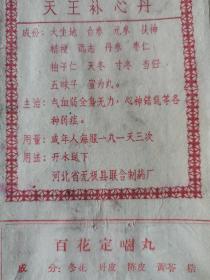 天王补心丹
成份：大生地 台参 元参 茯神
桔梗 远志 丹参 枣仁
柏子仁 天冬 寸冬 当归
五味子 蜜为丸。
主治：气血弱全身无力，心神错乱等各
种药症。
用量：成年人每服一丸一天三次
用法：开水送下
河北省无极县联合制药厂
百花定喘丸
成 分：冬花 丹皮 陈皮 黄芩 桔